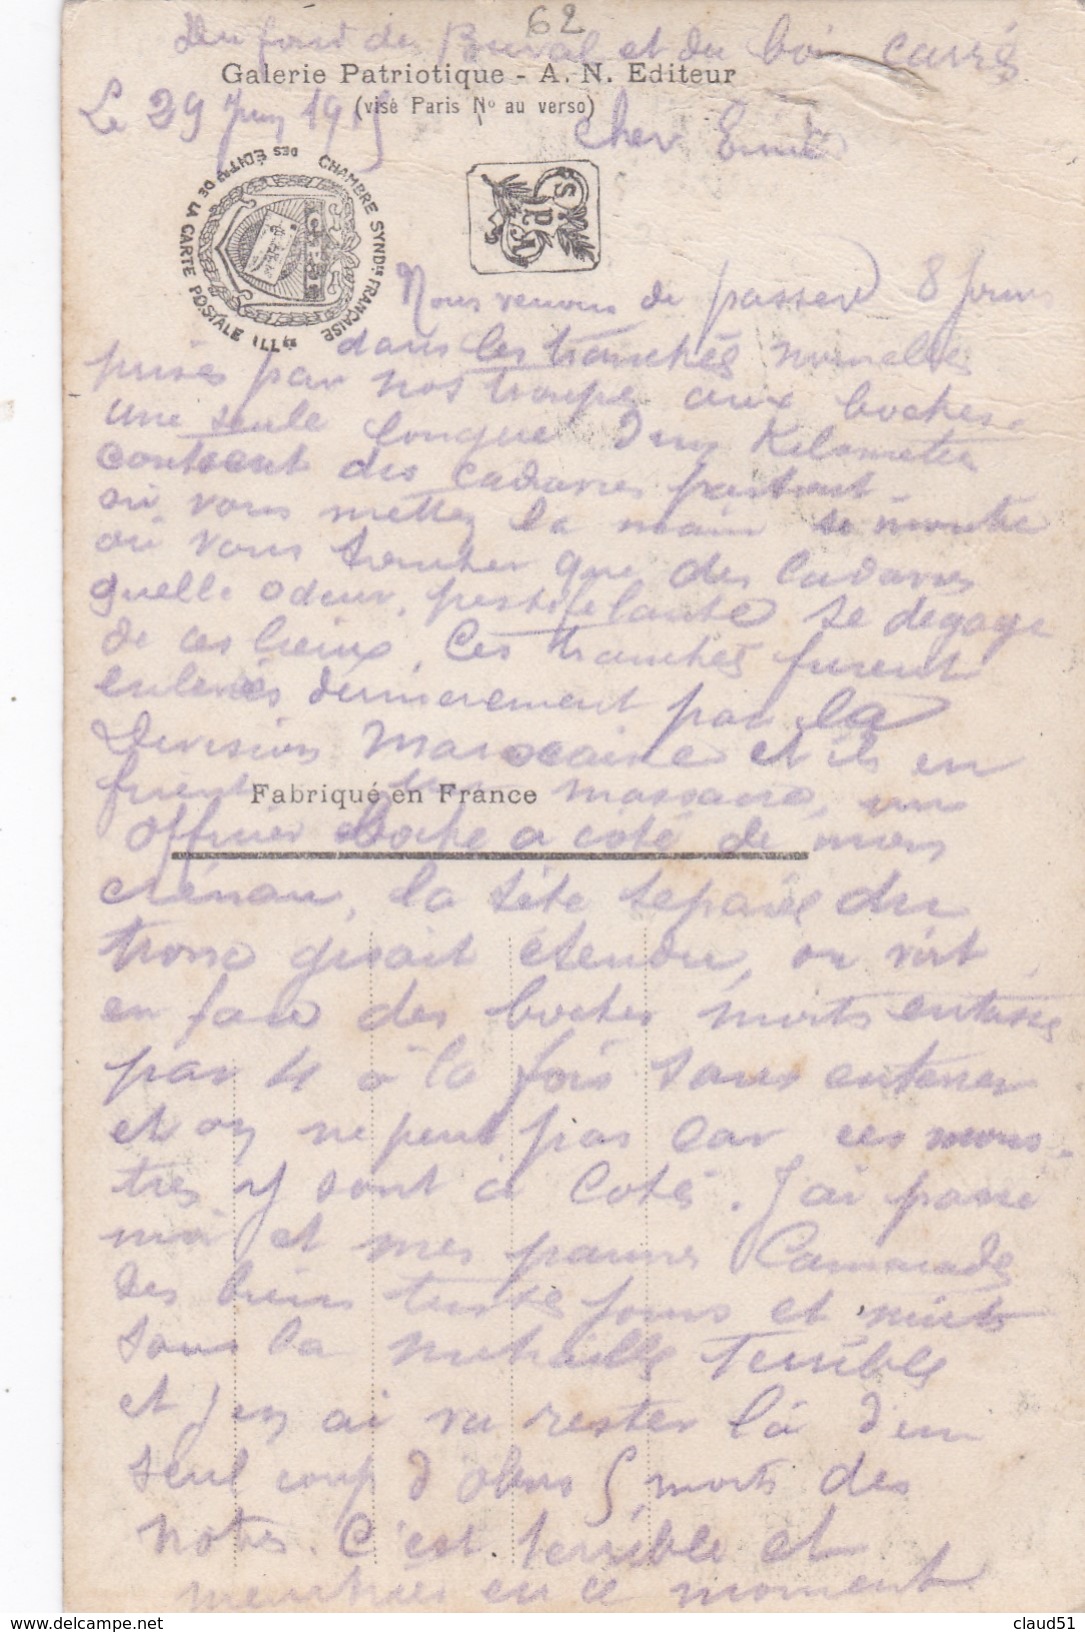 62
Du fond du Bouval et du bois carré
Galerie Patriotique - A. N. Editeur
(visé Paris Nº au verso)
Le 29 Juin 1915 Cher
CHAMBRE SYND.le FRANÇAISE DES ÉDIT.rs DE LA CARTE POSTALE ILL.ée
Nous venons de passer 8 jours
dans les tranchés nouvelles
prises par nos troupes aux boches.
une seule longue d'un Kilometre
contient des cadavres partout
où vous mettez la main se montre
où vous toucher que des Cadavres
quelle odeur, pestifelante se dégage
de ces lieux. Ces tranchés furent
enlevés dernierement par la
Division Marocaine et ils en
firent massacre, un
officier boche a coté de mon
crénau, la tête séparée du
tronc gisait étendu, on voit
en face des boches morts entassés
par 4 à la fois sans enterrer
et on ne peut pas car ces mons-
tres y sont à Coté. J'ai passé
moi et mes pauvres Camarades
des biens tristes jours et nuits
sous la mitraille terrible
et j'en ai vu rester là d'un
seul coup d'obus 5 morts des
notres. C'est terrible et
meurtrier en ce moment
Fabriqué en France
claud51